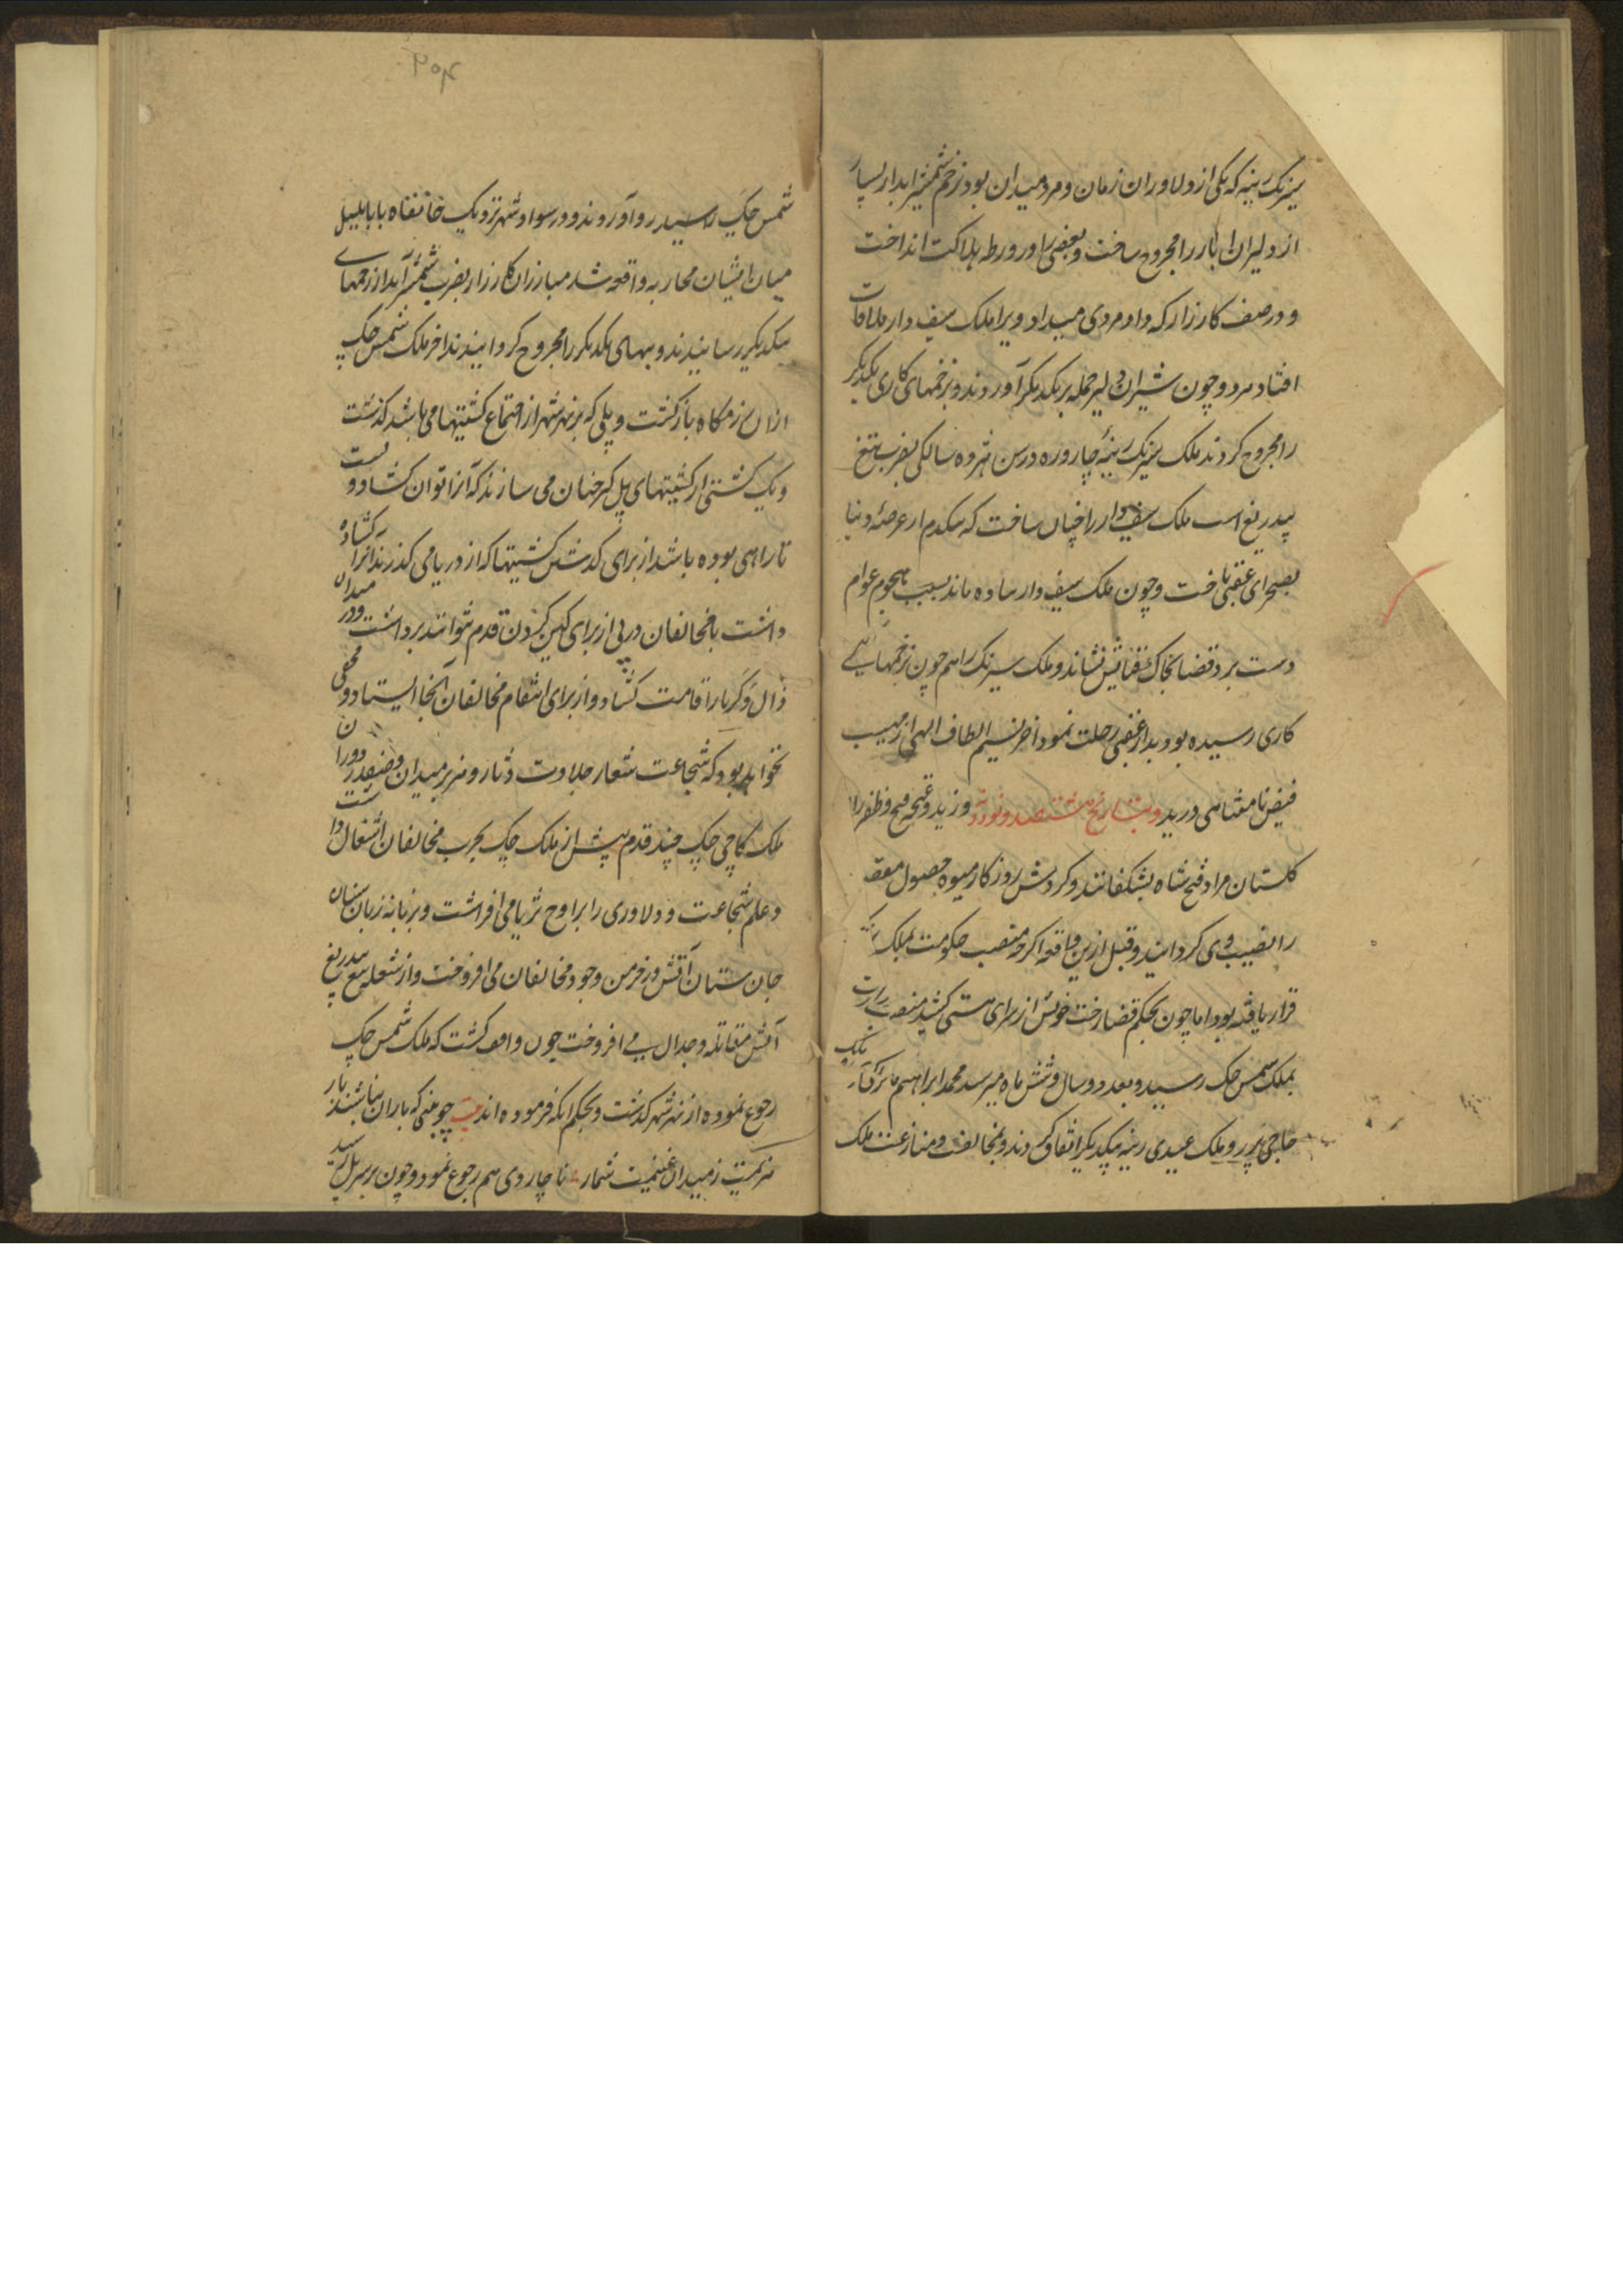 سیرنک رینه که یکی از دلاوران زمان و مرد میدان بود زخم شمشیر ابدار بسیار
از دلیران را مجروح ساخت و بعضی را در ورطه هلاکت انداخت
و در صف کارزار که داد مردی میداد ویرا ملک سیف دار ملاقات
افتاد هر دو چون شیران دلیر حمله بر یکدیکر آوردند و بزخمهای کاری یکدیکر
را مجروح کردند ملک سیرنک رینه چارورده در سن هژده سالکی بضرب تیغ
بیدریغ اسب ملک سیفدار را چنان ساخت که بیکدم از عرصه دنیا
بصحرای عقبی تاخت و چون ملک سیف دار ساده ماند بسبب هجوم عوام
دست برد قضا بخاک فنایش نشاند و ملک سیرنک را هم چون زخمهایی
کاری رسیده بود بدار عقبی رحلت نمود اخر نسیم الطاف الهی از مهب
فیض نامتناهی وزید و بتاریخ هشتصد و نود وزید و غنچه فتح و ظفر را
کلستان مراد فتح شاه بشکفانند و کردش روزکار میوه حصول مقصد
را نصیب وی کردانید و قبل ازین واقعه اکرچه منصب حکومت بملک
قرار یافته بود اما چون بحکم قضا رخت خویش از سرای هستی کشید منصب
بملک شمس چک رسید و بعد دو سال و شش ماه میر سید محمد ابراهیم ماکری
حاجی پدر و ملک عیدی رینه بیکدیکر اتفاق کردند و بمخالفت و منازعت ملک
۲۰۴
شمس چک رسید رو آوردند و در سواد شهر نزدیک خانقاه بابا بلبل
میان ایشان محاربه واقعه شد مبارزان کارزار بضرب شمشیر آبدار زخمهای
یکدیکر رسانیدند و بهای یکدیکر را مجروح کردانیدند اخر ملک شمس چک
ازان رزمکاه بازکشت و پلی که بر نهر شهر از اجتماع کشتیها می باشد کذشت
و یک کشتی از کشتیهای پل که چنان می سازند که آنرا توان کشاد و بست
تا راهی بوده باشد از برای کذشتن کشتیها که از دریا می کذرند آنرا کشاده
داشت تا مخالفان در پی از برای کین کردن قدم نتوانند برداشت و در میدان
زال دکر بار اقامت کشاد و از برای انتقام مخالفان آنجا ایستاد و مخفی
نخواهد بود که شجاعت شعار جلادت دثار و نبرد میدان و صفدر دوران
ملک کاچی چک چند قدم پیش از ملک چک بحرب مخالفان اشتغال داشت
و علم شجاعت و دلاوری را بر اوج ثریا می افراشت و بزبانه زبان سنان
جان ستان آتش در خرمن وجود مخالفان می افروخت و از شعله تیغ بیدریغ
آتش مقاتله و جدال می افروخت چون واقف کشت که ملک شمس چک
رجوع نموده از نهر شهر کذشت و بحکم انکه فرموده اند بیت چو بینی که یاران نباشند یار
هزیمت ز میدان غنیمت شمار ناچار وی هم رجوع نمود و چون بر سر پل رسید